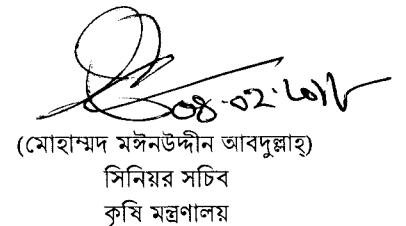 ০৪.০২.২০১৮
(মোহাম্মদ মঈনউদ্দীন আবদুল্লাহ্)
সিনিয়র সচিব
কৃষি মন্ত্রণালয়